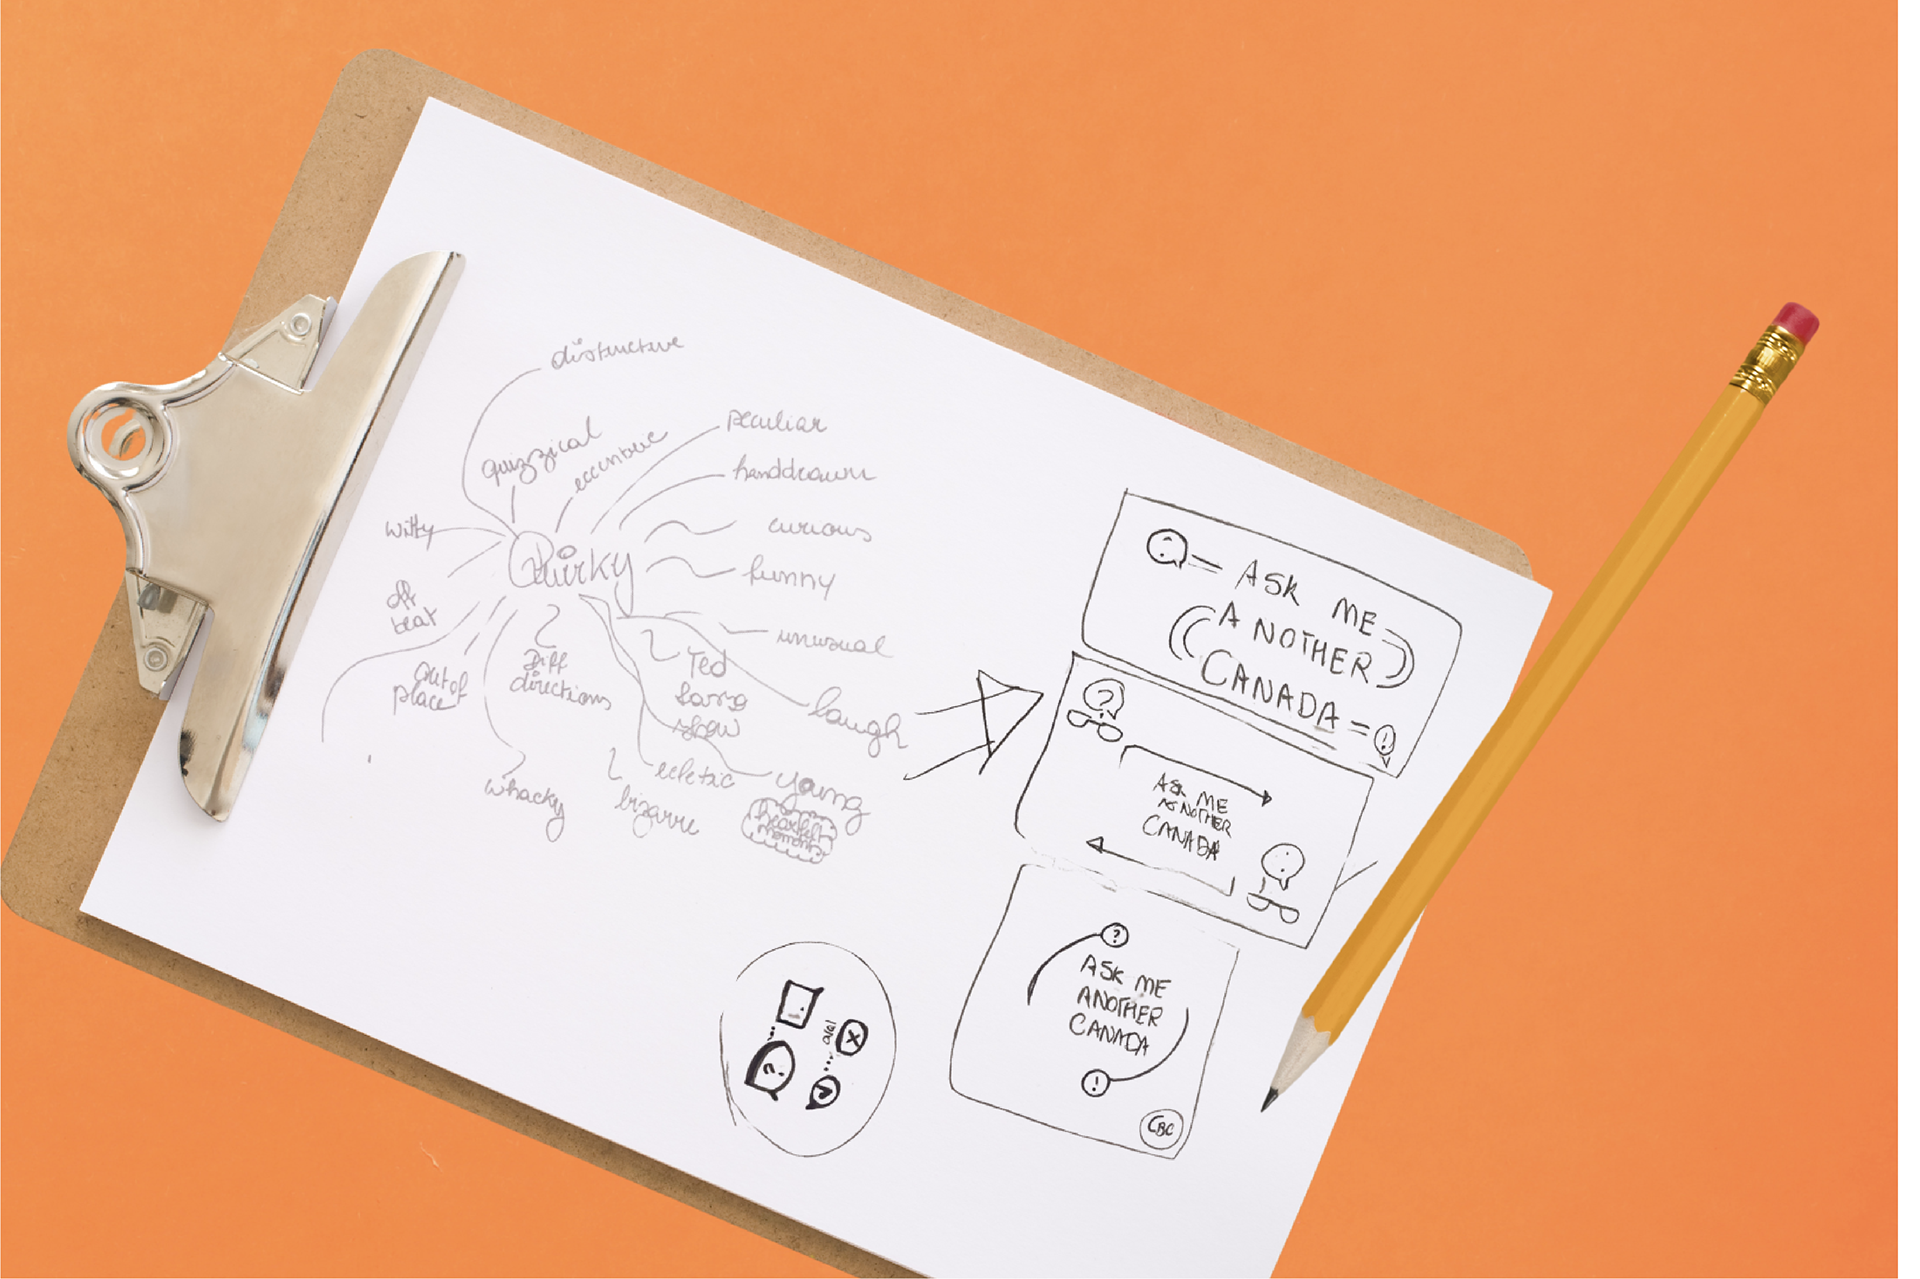 distinctive
quizzical
eccentric
peculiar
handdrawn
curious
funny
unusual
laugh
young
heartfelt
moments
Ted
show
ecletic
bizarre
Diff
directions
whacky
out of
place
off
beat
witty
Quirky
?
ASK ME
ANOTHER
CANADA
!
?
ASK ME
ANOTHER
CANADA
!
?
ASK ME
ANOTHER
CANADA
!
CBC
?
X